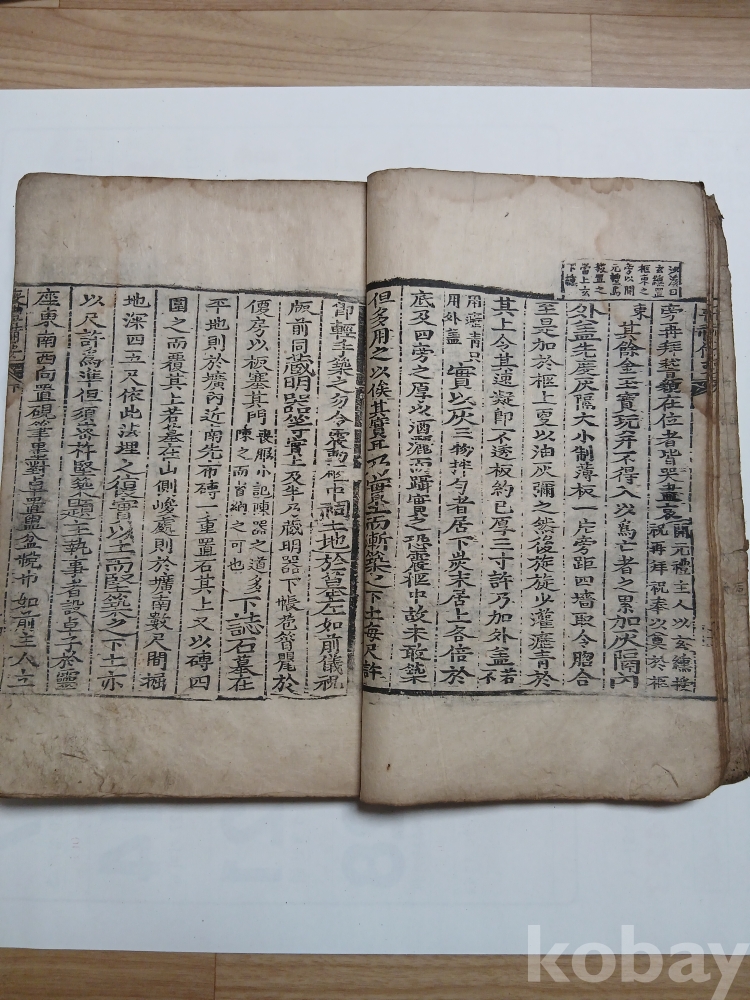 旁再拜稽顙在位者皆哭盡哀
開元禮主人以玄纁授
祝再拜祝奉以奠於柩
東
其餘金玉寶玩并不得入以爲亡者之累加灰隔內
外盖先度灰隔大小制薄板一片旁距四墻取令脗合
至是加於柩上更以油灰彌之然後旋旋少灌瀝青於
其上令其速凝即不透板約已厚三寸許乃加外盖
若
不
用瀝青只
用外盖
實以灰三物拌勻者居下炭末居上各倍於
底及四旁之厚以酒灑而躡實之恐震柩中故未敢築
但多用之以俟其實耳乃實土而漸築之下土每尺許
即輕手築之勿令震動柩中祠土地於墓左如前儀祝
版前同藏明器等實土及半乃藏明器下帳苞筲甖於
便房以板塞其門
喪服小記陳器之道多
陳之而省納之可也
下誌石墓在
平地則於壙內近南先布磚一重置石其上又以磚四
圍之而覆其上若墓在山側峻處則於壙南數尺間掘
地深四五尺依此法埋之復實以土而堅築之下土亦
以尺許爲準但須密杵堅築題主執事者設卓子於靈
座東南西向置硯筆墨對卓置盥盆帨巾如前主人立
kobay